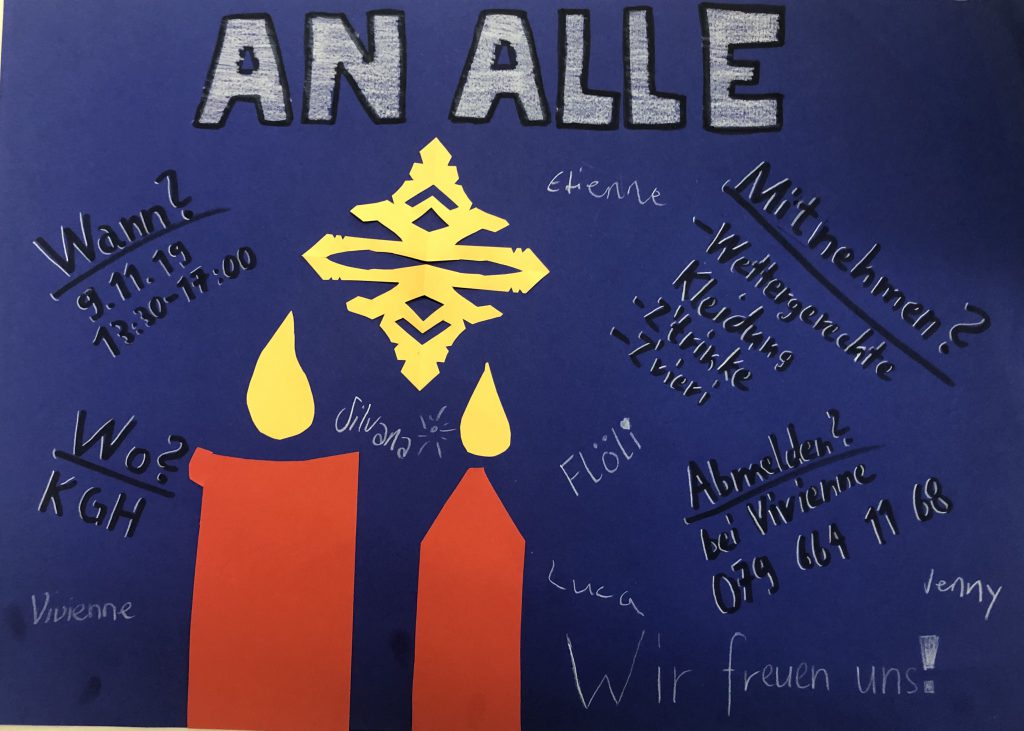 AN ALLE
Wann?
9.11.19
13:30-17:00
Etienne
Mitnehmen?
-Wettergerechte
Kleidung
-Z'trinke
-Zvieri
Silvana
Flöli
Wo?
KGH
Abmelden?
bei Vivienne
079 664 11 68
Vivienne
Luca
Jenny
Wir freuen uns!